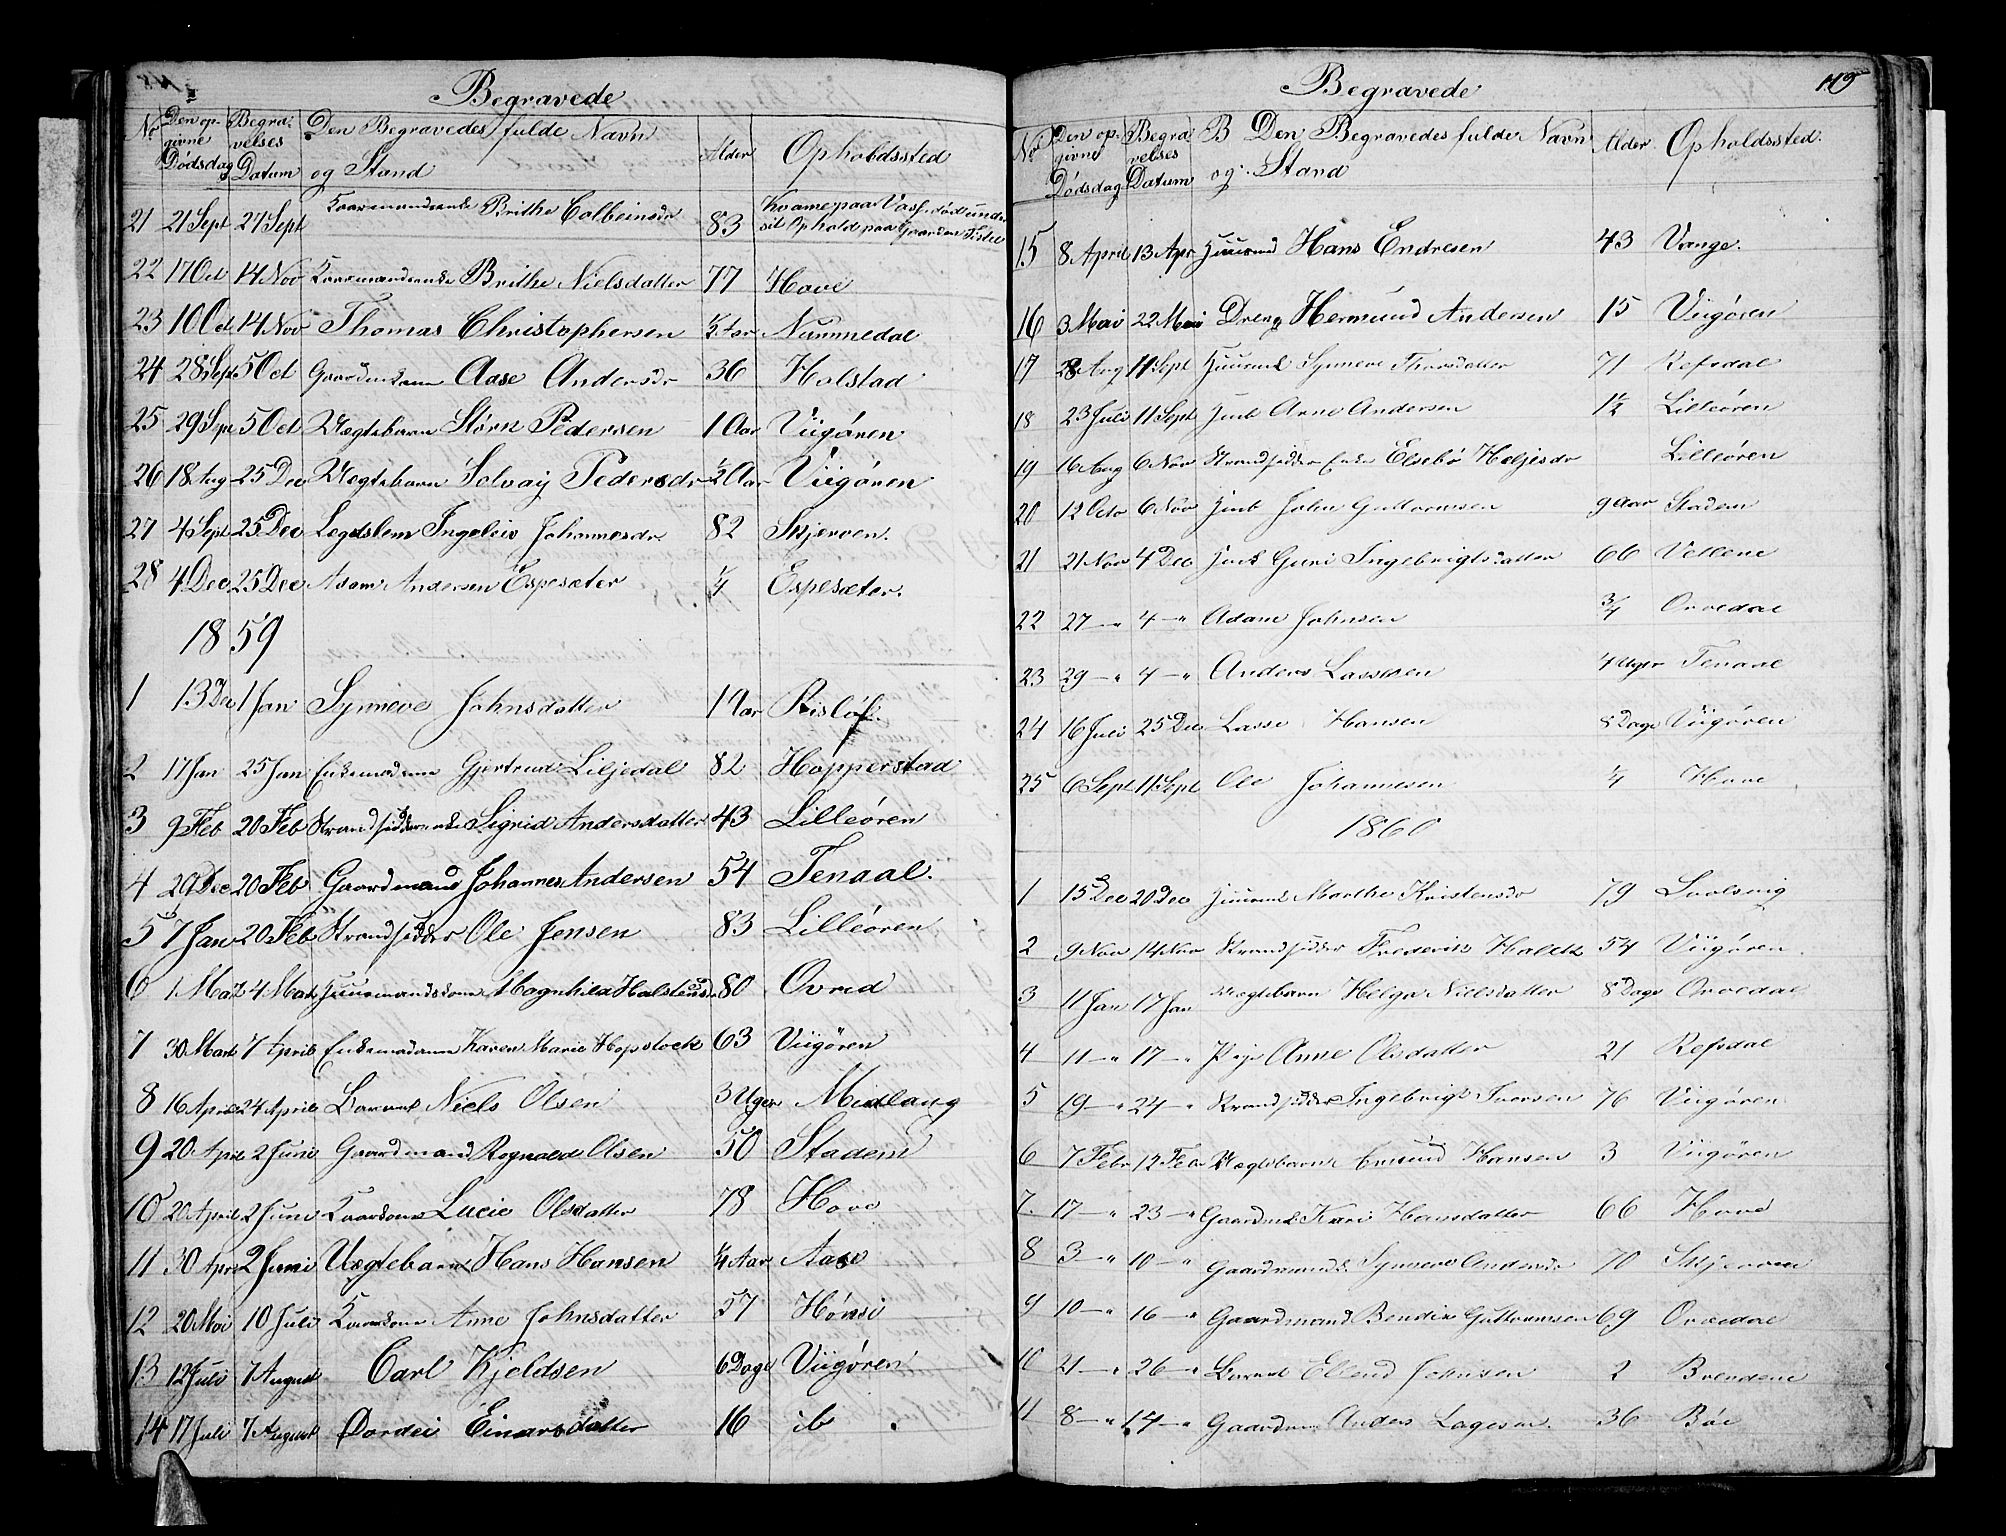 Begravede
No Den opgivne Dødsdag Begravelses Datum Den Begravedes fulde Navn og Stand Alder Opholdssted
21 21 Sept 27 Sept Kaarmandsenke Brithe Colbeinsdr 83 Kvame paa Vass. død under
sit Ophold paa Gaarden
22 17 Oct 14 Nov Kaarmandsenke Brithe Nielsdatter 77 Hove
23 10 Oct 14 Nov Thomas Christophersen ½ Aar Nummedal
24 28 Sept 5 Oct Gaardmdskone Aase Andersdr 36 Holstad
25 29 Sept 5 Oct Uægtebarn Størn Pedersen 1 Aar Viigøren
26 18 Aug 25 Dec Uægtebarn Solvay Pedersdr ½ Aar Viigøren
27 4 Sept 25 Dec Legdslem Ingeleiv Johannesdr. 82 Skjerven.
28 4 Dec 25 Dec Adam Andersen Espesæter ¼ Espesæter.
1859
1 13 Dec 1 Jan Synneve Johnsdatter 1 Aar Risløf.
2 17 Jan 25 Jan Enkemadame Gjertrud Liljedal 82 Hopperstad
3 9 Feb 20 Feb Strandsidderenke Sigrid Andersdatter 43 Lilleøren
4 29 Dec 20 Feb Gaardmand Johannes Andersen 54 Tenaal.
5 7 Jan 20 Feb Strandsidder Ole Jensen 83 Lilleøren
6 1 Mar 4 Mar Huusmandskone Magnhild Halsteinsdr 80 Ovrid
7 30 Marts 7 April Enkemadame Karen Marie Hopstock 63 Viigøren
8 16 April 24 April Barnet Niels Olsen 3 Uger Midlang
9 20 April 2 Juni Gaardmand Rognald Olsen 50 Stadem
10 20 April 2 Juni Kaarkone Lucie Olsdatter 78 Hove
11 30 Apr 2 Juni Uægtebarn Hans Hansen ¼ Aar Aase
12 20 Mai 10 Juli Kaarkone Anne Johnsdatter 57 Hønsi
13 12 Juli 7 August Carl Kjeldsen 6 Dage Viigøren
14 17 Juli 7 August Dordei Einarsdatter 16 ib.
Begravede
119
No Den opgivne Dødsdag Begravelses Datum B Den Begravedes fulde Navn og Stand Alder Opholdssted.
15 8 April 13 Apr Huusmd Hans Endresen 43 Vange.
16 3 Mai 22 Mai Dreng Hermund Andersen 15 Viigøren
17 28 Aug 11 Sept Synneve Thorsdatter 71 Refsdal
18 23 Juli 11 Sept Arne Andersen 1½ Lilleøren
19 16 Aug 6 Nov Strandsidder Enke Elsebø Heljesdr Lilleøren
20 12 Octo 6 Nov John Guttormsen 9 Aar Stadem
21 21 Nov 4 Dec Guri Ingebrigtsdatter 66 Vellene
22 27 —"— 4 —"— Adam Johnsen ¾ Orvedal
23 29 —"— 4 —"— Anders Lassesen 4 Uger Tenaal
24 16 Juli 25 Dec Lasse Hansen 8 Dage Viigøren
25 6 Sept 11 Sept Ole Johannesen ¼ Hove
1860
1 15 Dec 20 Dec Marthe Kristensdr 79
2 9 Nov 14 Nov Strandsidder Frederik 54 Viigøren
3 11 Jan 17 Jan Uægtebarn Helga Nielsdatter 8 Dage Orvedal
4 11 —"— 17 —"— Pige Anne Olsdatter 21 Refsdal
5 19 —"— 24 —"— Strandsidder Ingebrigt Iversen 76 Viigøren
6 7 Febr 12 Febr Uægtebarn Amund Hansen 3 Viigøren
7. 17 —"— 23 —"— Gaardmk Kari Hansdatter 66 Hove
8 3 —"— 10 —"— Gaardmandk Synneve Andersdr 70 Skjerven
9 10 —"— 16 —"— Gaardmand Bendix Guttormsen 69 Orvedal
10 21 —"— 26 —"— Barnet Ellend Johnsen 2 Brendene
11 8 —"— 14 —"— Gaardm Anders Lagesen. 36 Bøe